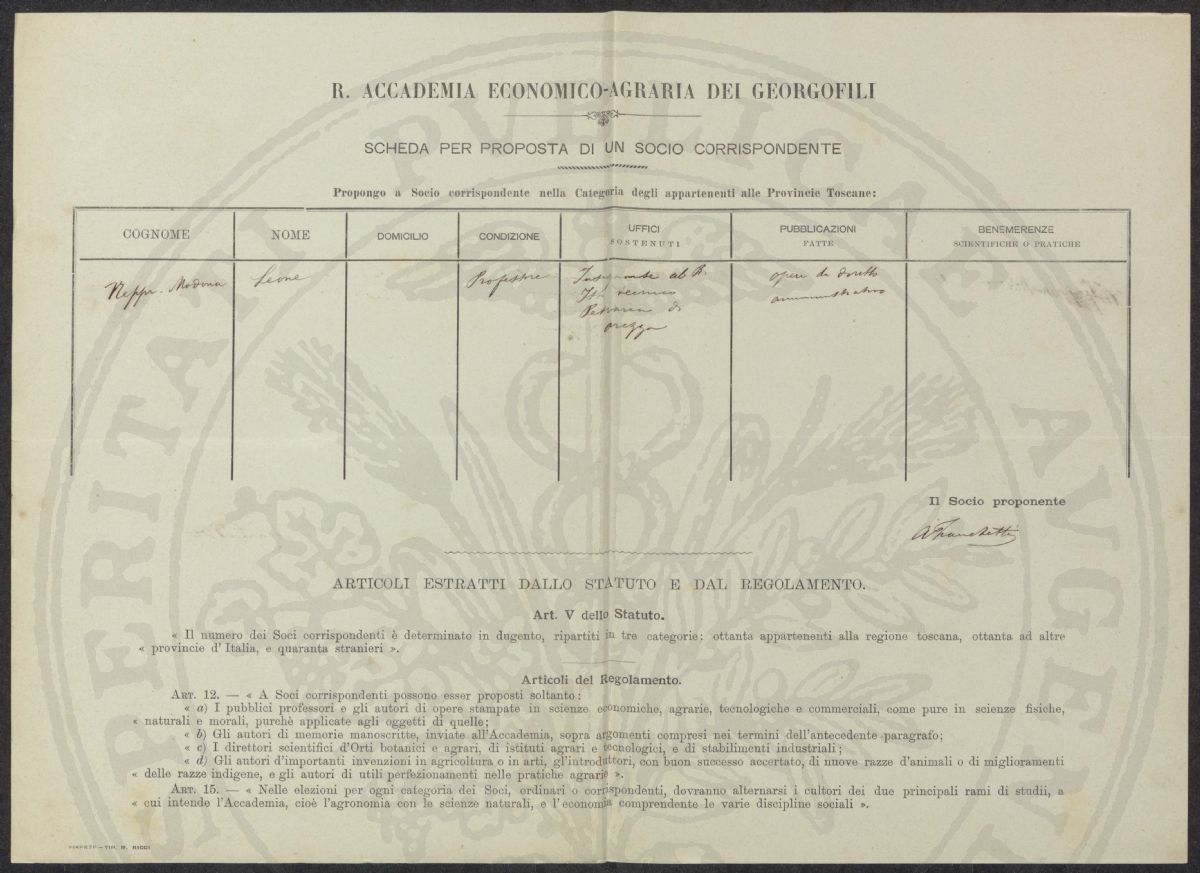 R. ACCADEMIA ECONOMICO-AGRARIA DEI GEORGOFILI
SCHEDA PER PROPOSTA DI UN SOCIO CORRISPONDENTE
Propongo a Socio corrispondente nella Categoria degli appartenenti alle Provincie Toscane:
COGNOME
NOME
DOMICILIO
CONDIZIONE
UFFICI
SOSTENUTI
PUBBLICAZIONI
FATTE
BENEMERENZE
SCIENTIFICHE O PRATICHE
Neppi-Modona
Leone
Professore
Insegnante al R.
Ist. tecnico
di
Arezzo
opere di diritto
amministrativo
Il Socio proponente
A Franchetti
ARTICOLI ESTRATTI DALLO STATUTO E DAL REGOLAMENTO.
Art. V dello Statuto.
« Il numero dei Soci corrispondenti è determinato in dugento, ripartiti in tre categorie: ottanta appartenenti alla regione toscana, ottanta ad altre
« provincie d'Italia, e quaranta stranieri ».
Articoli del Regolamento.
ART. 12. — « A Soci corrispondenti possono esser proposti soltanto:
« a) I pubblici professori e gli autori di opere stampate in scienze economiche, agrarie, tecnologiche e commerciali, come pure in scienze fisiche,
« naturali e morali, purchè applicate agli oggetti di quelle;
« b) Gli autori di memorie manoscritte, inviate all'Accademia, sopra argomenti compresi nei termini dell'antecedente paragrafo;
« c) I direttori scientifici d'Orti botanici e agrari, di istituti agrari e tecnologici, e di stabilimenti industriali;
« d) Gli autori d'importanti invenzioni in agricoltura o in arti, gl'introduttori, con buon successo accertato, di nuove razze d'animali o di miglioramenti
« delle razze indigene, e gli autori di utili perfezionamenti nelle pratiche agrarie ».
ART. 15. — « Nelle elezioni per ogni categoria dei Soci, ordinari o corrispondenti, dovranno alternarsi i cultori dei due principali rami di studii, a
« cui intende l'Accademia, cioè l'agronomia con le scienze naturali, e l'economia comprendente le varie discipline sociali ».
FIRENZE — TIP. M. RICCI
PROSPERITATI PVBLICAE AVGENDAE